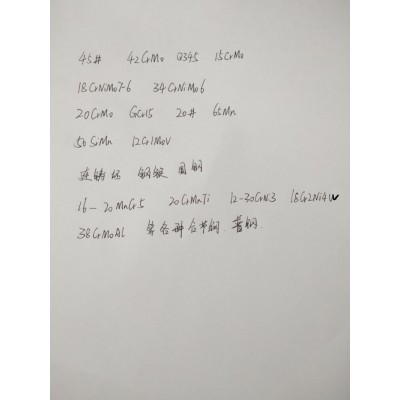 45# 42CrMo Q345 15CrMo
18CrNiMo7-6 34CrNiMo6
20CrMo GCr15 20# 65Mn
50SiMn 12Cr1MoV
连铸坯 钢锭 圆钢
16-20MnCr5 20CrMnTi 12-30CrNi3 18Cr2Ni4W
38CrMoAl 等各种合节钢.普钢.